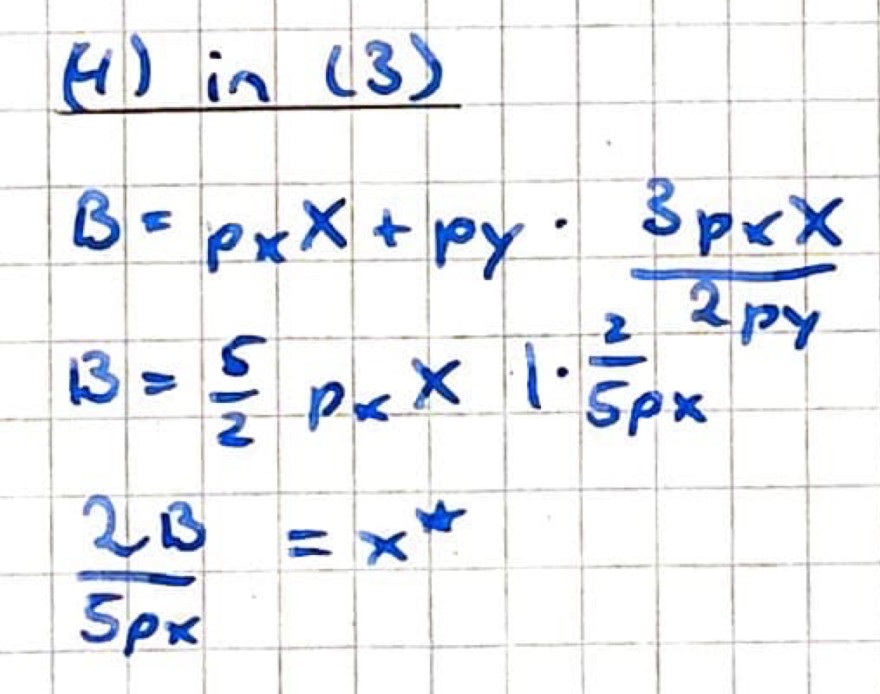 (4) in (3)
B = pₓX + py · 3pₓX / 2py
B = 5/2 pₓX | · 2/5px
2B / 5px = x*